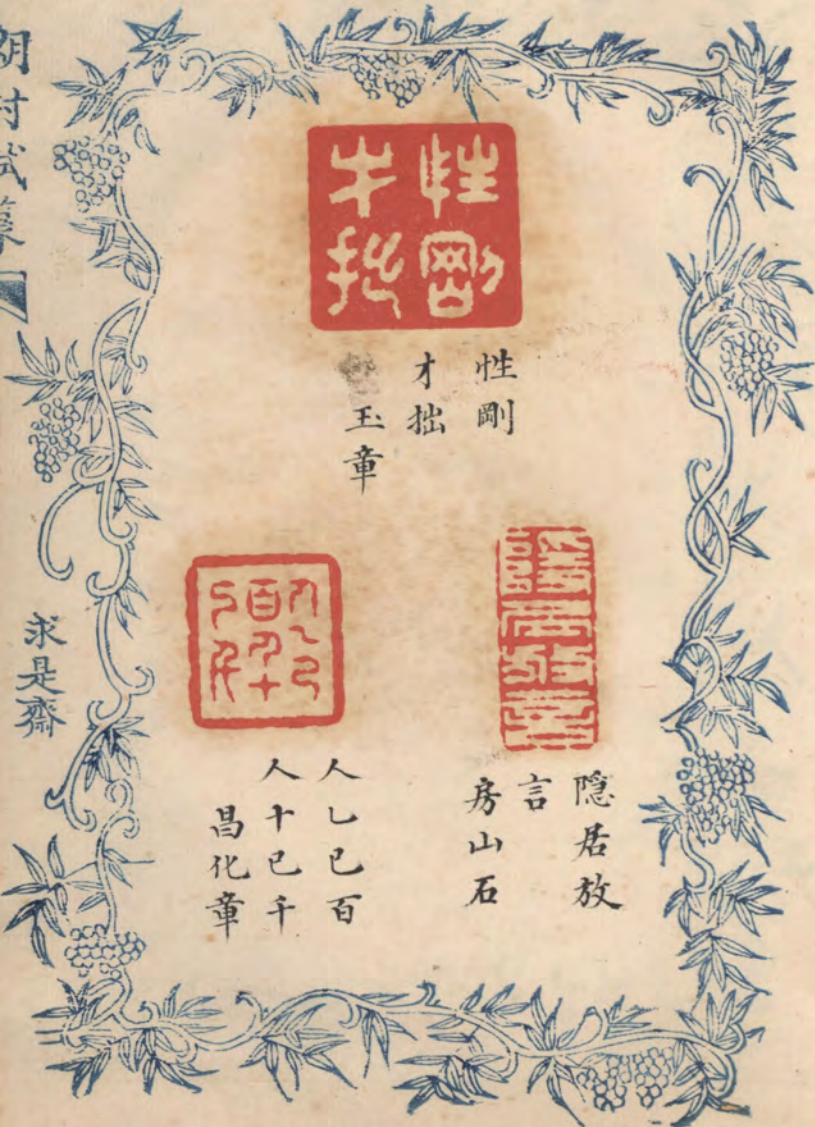 性剛
才拙
性剛
才拙
玉章
隱居放言
隱居放
言
房山石
人乙己百
人十己千
人乙已百
人十已千
昌化章
求是齋